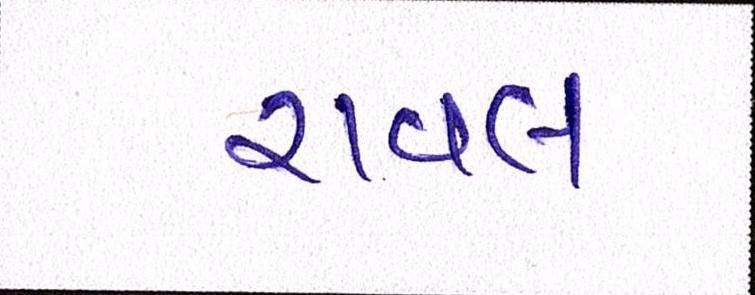 રાવલ